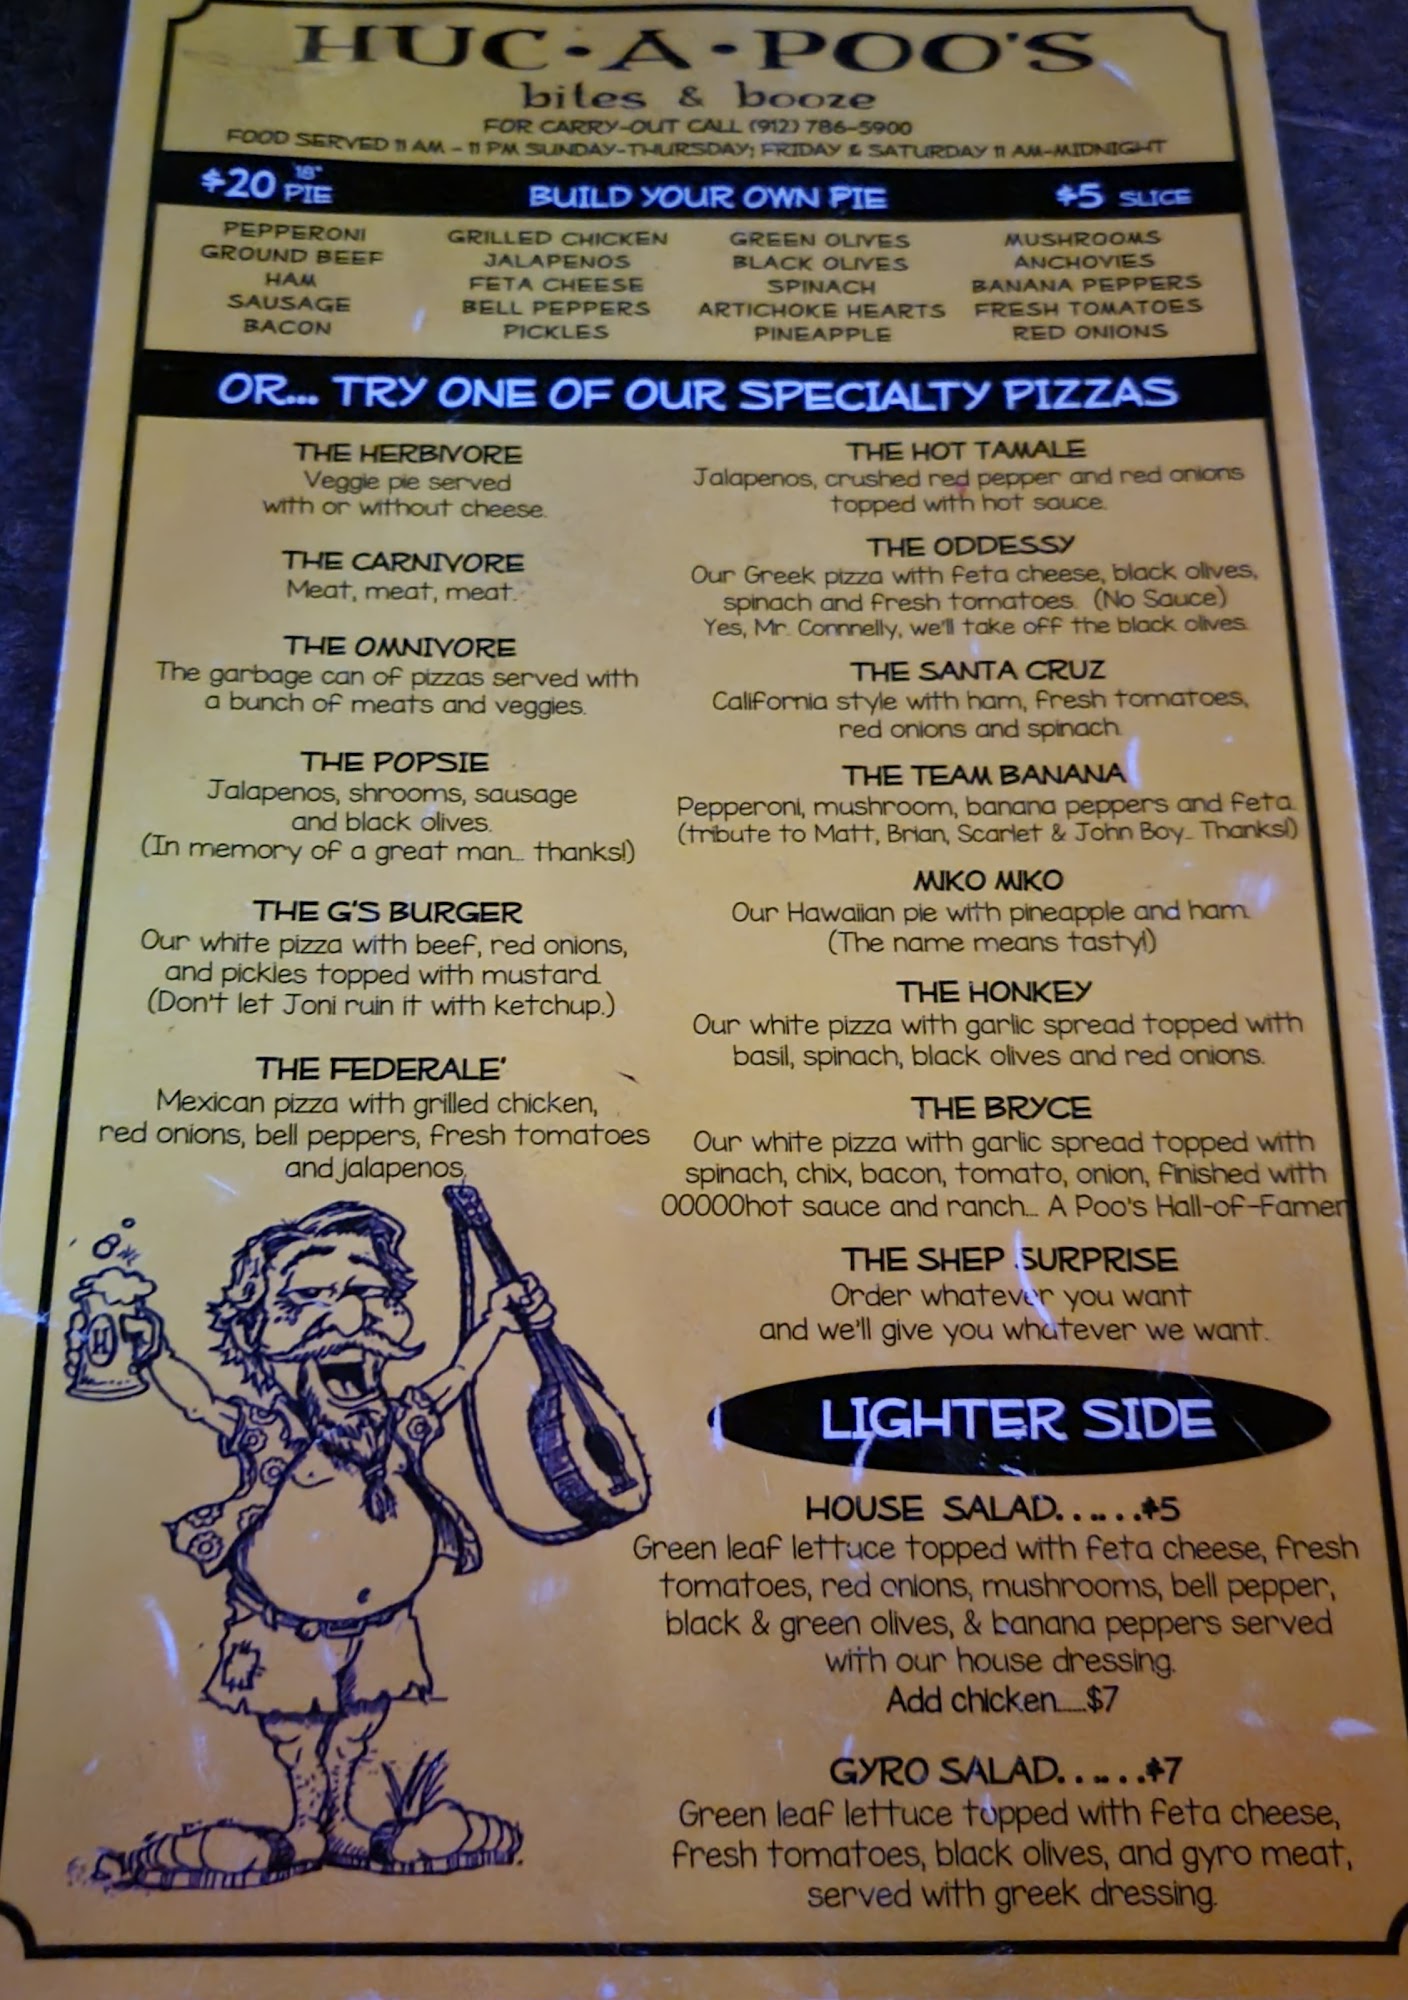 HUC•A•POO'S
bites & booze
FOR CARRY-OUT CALL (912) 786-5900
FOOD SERVED 11 AM - 11 PM SUNDAY-THURSDAY; FRIDAY & SATURDAY 11 AM-MIDNIGHT
$20 18" PIE BUILD YOUR OWN PIE $5 SLICE
PEPPERONI GRILLED CHICKEN GREEN OLIVES MUSHROOMS
GROUND BEEF JALAPENOS BLACK OLIVES ANCHOVIES
HAM FETA CHEESE SPINACH BANANA PEPPERS
SAUSAGE BELL PEPPERS ARTICHOKE HEARTS FRESH TOMATOES
BACON PICKLES PINEAPPLE RED ONIONS
OR... TRY ONE OF OUR SPECIALTY PIZZAS
THE HERBIVORE
Veggie pie served
with or without cheese.
THE CARNIVORE
Meat, meat, meat.
THE OMNIVORE
The garbage can of pizzas served with
a bunch of meats and veggies.
THE POPSIE
Jalapenos, shrooms, sausage
and black olives.
(In memory of a great man... thanks!)
THE G'S BURGER
Our white pizza with beef, red onions,
and pickles topped with mustard.
(Don't let Joni ruin it with ketchup.)
THE FEDERALE'
Mexican pizza with grilled chicken,
red onions, bell peppers, fresh tomatoes
and jalapenos.
H
THE HOT TAMALE
Jalapenos, crushed red pepper and red onions
topped with hot sauce.
THE ODDESSY
Our Greek pizza with feta cheese, black olives,
spinach and fresh tomatoes. (No Sauce)
Yes, Mr. Connnelly, we'll take off the black olives.
THE SANTA CRUZ
California style with ham, fresh tomatoes,
red onions and spinach.
THE TEAM BANANA
Pepperoni, mushroom, banana peppers and feta.
(tribute to Matt, Brian, Scarlet & John Boy... Thanks!)
MIKO MIKO
Our Hawaiian pie with pineapple and ham.
(The name means tasty!)
THE HONKEY
Our white pizza with garlic spread topped with
basil, spinach, black olives and red onions.
THE BRYCE
Our white pizza with garlic spread topped with
spinach, chix, bacon, tomato, onion, finished with
OOOOOhot sauce and ranch... A Poo's Hall-of-Famer
THE SHEP SURPRISE
Order whatever you want
and we'll give you whatever we want.
LIGHTER SIDE
HOUSE SALAD.......$5
Green leaf lettuce topped with feta cheese, fresh
tomatoes, red onions, mushrooms, bell pepper,
black & green olives, & banana peppers served
with our house dressing.
Add chicken......$7
GYRO SALAD.......$7
Green leaf lettuce topped with feta cheese,
fresh tomatoes, black olives, and gyro meat,
served with greek dressing.